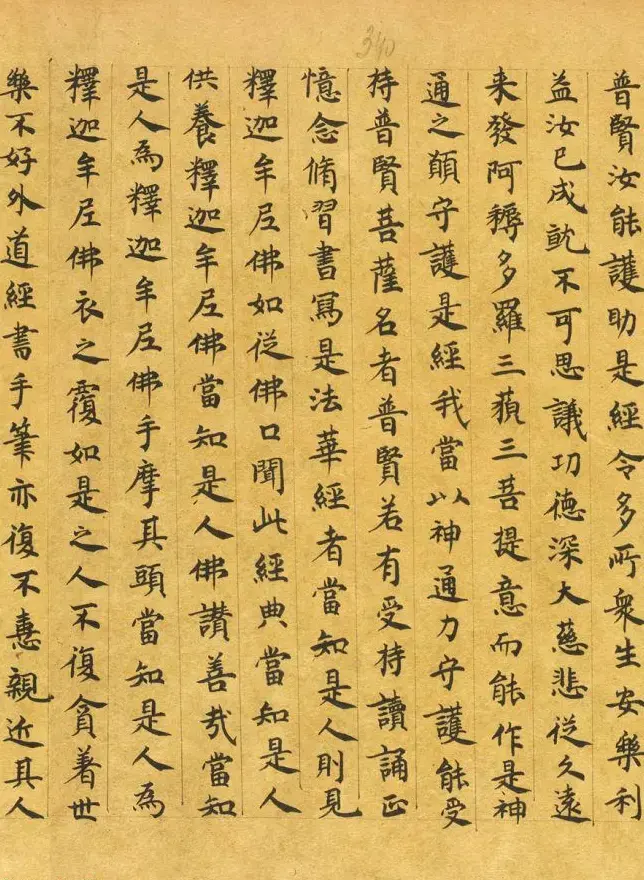 340
普賢汝能護助是經令多所衆生安樂利
益汝已成就不可思議功德深大慈悲從久遠
来發阿耨多羅三藐三菩提意而能作是神
通之願守護是經我當以神通力守護能受
持普賢菩薩名者普賢若有受持讀誦正
憶念脩習書寫是法華經者當知是人則見
釋迦牟尼佛如從佛口聞此經典當知是人
供養釋迦牟尼佛當知是人佛讃善哉當知
是人為釋迦牟尼佛手摩其頭當知是人為
釋迦牟尼佛衣之覆如是之人不復貪著世
樂不好外道經書手筆亦復不憙親近其人